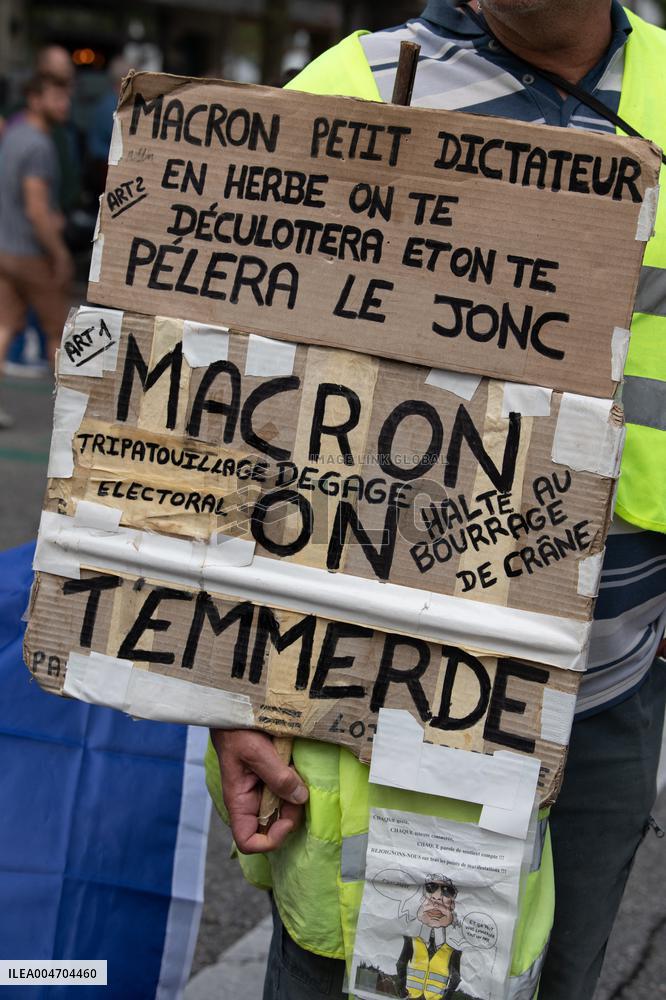 MACRON PETIT DICTATEUR
ART 2
EN HERBE ON TE
DÉCULOTTERA ET ON TE
PÉLERA LE JONC
ART 1
MACRON
TRIPATOUILLAGE DEGAGE
ELECTORAL
ON
HALTE AU
BOURRAGE
DE CRÂNE
TEMMERDE
PA
IMAGE LINK GLOBAL
ILG
CHAQUE
CHAQUE
CHAQUE parole de soutient compte !!!
REJOIGNONS-NOUS sur tous les points de manifestations !!!
ILEA004704460